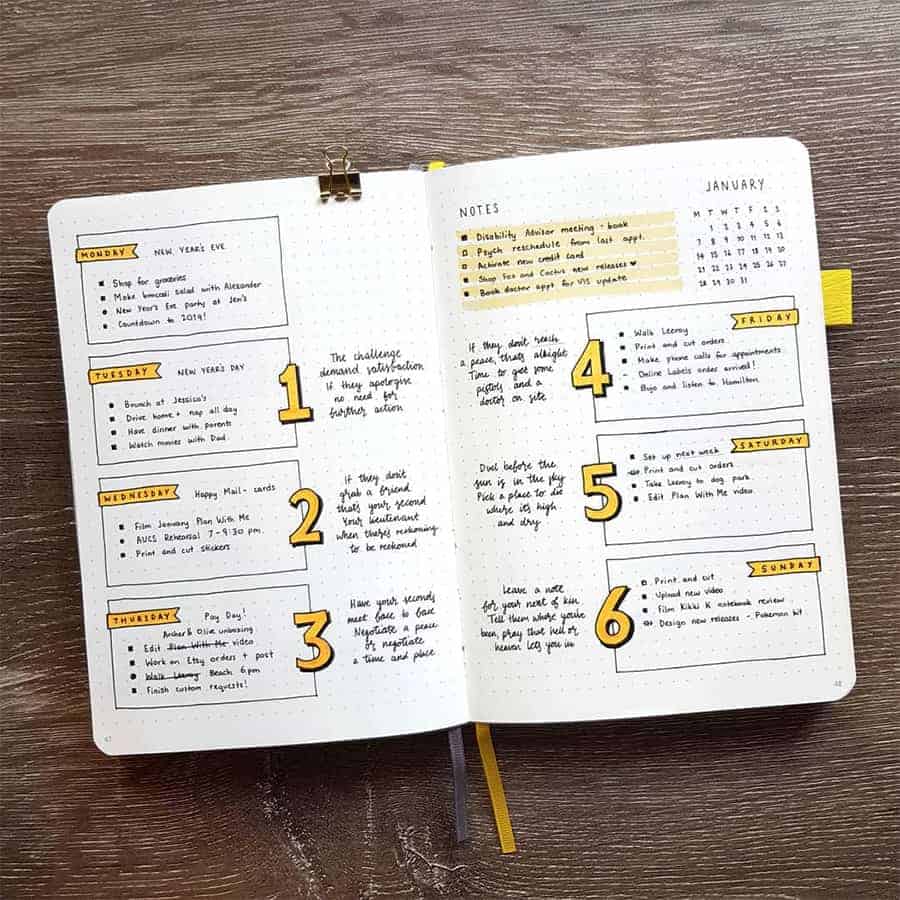 MONDAY NEW YEAR'S EVE
Shop for groceries
Make broccoli salad with Alexander
New Year's Eve party at Jen's
Countdown to 2019!
TUESDAY NEW YEAR'S DAY
Brunch at Jessica's
Drive home + nap all day
Have dinner with parents
Watch movies with Dad
WEDNESDAY Happy Mail - cards
Film January Plan With Me
AUCS Rehearsal 7-9:30 pm
Print and cut stickers
THURSDAY Pay Day!
Archer & Olive unboxing
Edit Plan With Me video
Work on Etsy orders + post
Walk Leeroy Beach 6pm
Finish custom requests!
1
The challenge
demand satisfaction
If they apologise
no need for
further action
2
If they don't
grab a friend
that's your second
Your lieutenant
when there's reckoning
to be reckoned
3
Have your seconds
meet face to face
Negotiate a peace
or negotiate
a time and place
47
NOTES
Disability Advisor meeting - book
Psych reschedule from last appt.
Activate new credit card
Shop Fox and Cactus new releases ♥
Book doctor appt for VIS update
JANUARY
M T W T F S S
1 2 3 4 5 6
7 8 9 10 11 12 13
14 15 16 17 18 19 20
21 22 23 24 25 26 27
28 29 30 31
If they don't reach
a peace, that's alright
Time to get some
pistols and a
doctor on site
4
FRIDAY
Walk Leeroy
Print and cut orders
Make phone calls for appointments
Online Labels order arrived!
Bujo and listen to Hamilton
Duel before the
sun is in the sky
Pick a place to die
where it's high
and dry
5
SATURDAY
Set up next week
Print and cut orders
Take Leeroy to dog park
Edit Plan With Me video
Leave a note
for your next of kin
Tell them where you've
been, pray that hell or
heaven lets you in
6
SUNDAY
Print and cut
Upload new video
Film Kikki K notebook review
Design new releases - Pokemon kit
48